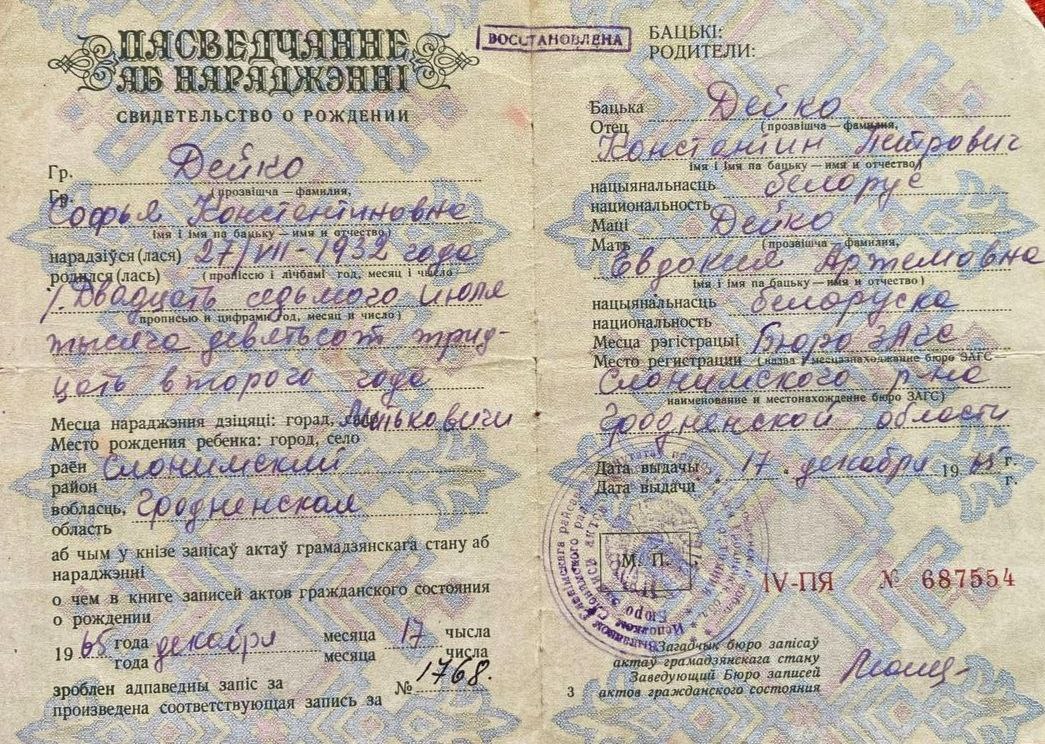 ПАСВЕДЧАННЕ
АБ НАРАДЖЭННІ
СВИДЕТЕЛЬСТВО О РОЖДЕНИИ
Гр. Дейко
Гр. (прозвішча — фамилия,
Софья Константиновна
імя і імя па бацьку — имя и отчество)
нарадзіўся (лася) 27/VII - 1932 года
родился (лась) (пропіссю і лічбамі год, месяц і чысло
/. Двадцать седьмого июля
прописью и цифрами год, месяц и число)
тысяча девятьсот трид-
цать второго года
Месца нараджэння дзіцяці: горад, сяло
Место рождения ребенка: город, село
раён Слонимский
район
вобласць, Гродненская
область
аб чым у кнізе запісаў актаў грамадзянскага стану аб
нараджэнні
о чем в книге записей актов гражданского состояния
о рождении
1965 года декабря месяца 17 чысла
года месяца числа
зроблен адпаведны запіс за № 1768.
произведена соответствующая запись за
ВОССТАНОВЛЕНА
БАЦЬКІ:
РОДИТЕЛИ:
Бацька Дейко
Отец (прозвішча — фамилия,
Константин Петрович
імя і імя па бацьку — имя и отчество)
нацыянальнасць белорус
национальность
Маці Дейко
Мать (прозвішча — фамилия,
Евдокия Артемовна
імя і імя па бацьку — имя и отчество)
нацыянальнасць белоруска
национальность
Месца рэгістрацыі Бюро ЗАГС
Место регистрации (назва і месцазнаходжанне бюро ЗАГС —
Слонимского р-на
наименование и местонахождение бюро ЗАГС)
Гродненской области
Дата выдачы 17. декабря 1965 г.
Дата выдачи г.
М. П.
IV-ПЯ № 687554
Загадчык бюро запісаў
актаў грамадзянскага стану
Заведующий Бюро записей
3 актов гражданского состояния